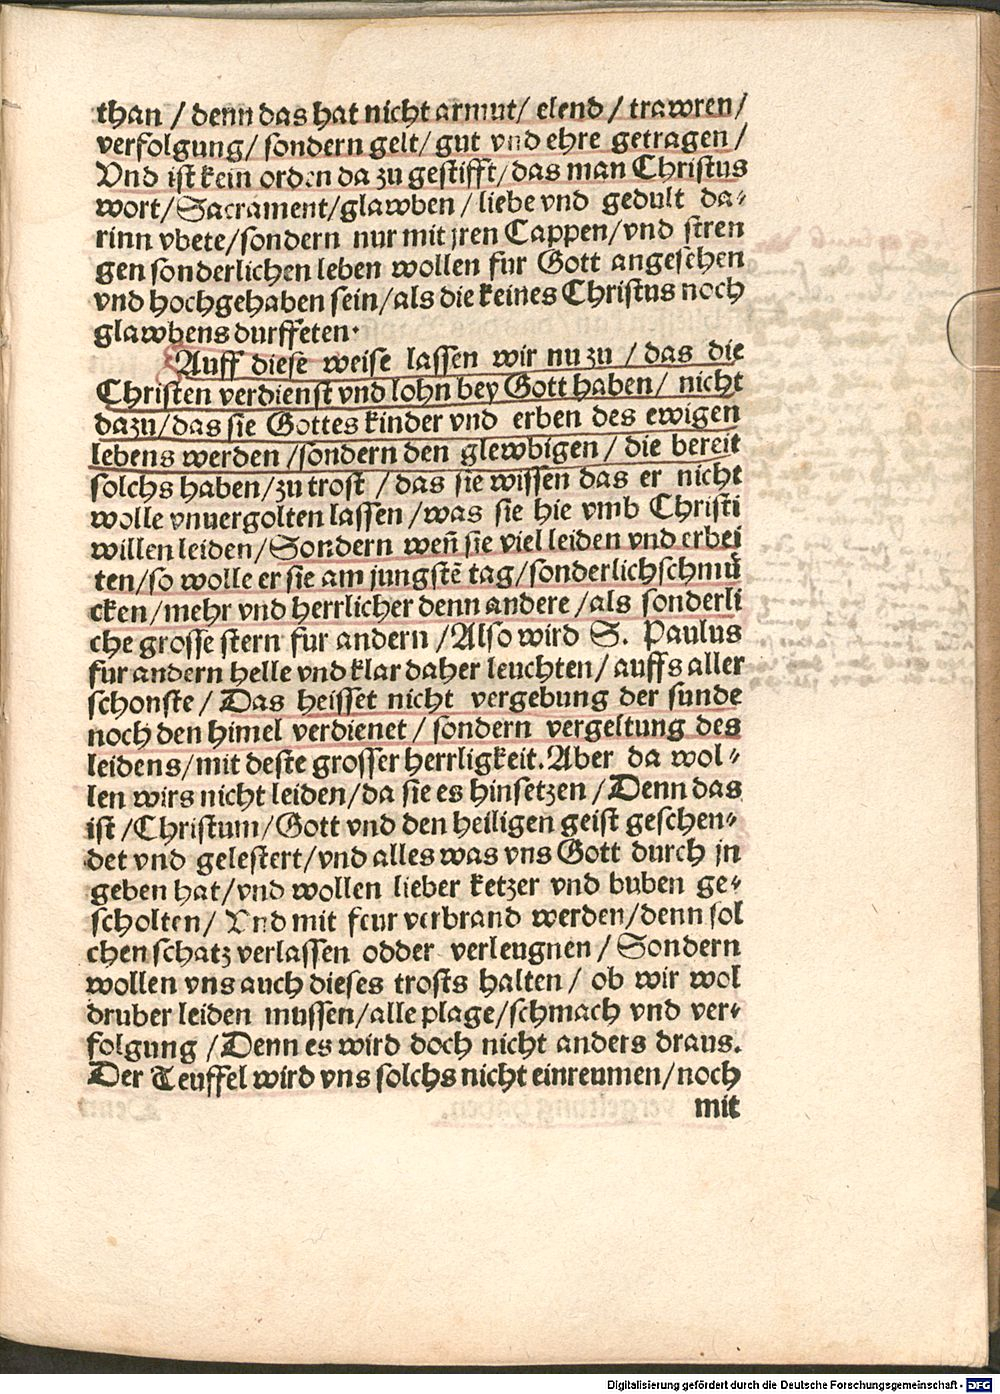 than / denn das hat nicht armut/ elend / trawren/
verfolgung/ sondern gelt/ gut vnd ehre getragen /
Vnd ist kein orden da zu gestifft/das man Christus
wort/Sacrament/glawben / liebe vnd gedult da⸗
rinn vbete/sondern nur mit jren Cappen/vnd stren
gen sonderlichen leben wollen fur Gott angesehen
vnd hochgehaben sein/als die keines Christus noch
glawbens durffeten.
Auff diese weise lassen wir nu zu / das die
Christen verdienst vnd lohn bey Gott haben/ nicht
dazu/das sie Gottes kinder vnd erben des ewigen
lebens werden /sondern den glewbigen / die bereit
solchs haben/zu trost / das sie wissen das er nicht
wolle vnuergolten lassen /was sie hie vmb Christi
willen leiden/Sondern weñ sie viel leiden vnd erbei
ten/so wolle er sie am jungstẽ tag/sonderlich schmuͤ
cken/mehr vnd herrlicher denn andere /als sonderli
che grosse stern fur andern /Also wird S. Paulus
fur andern helle vnd klar daher leuchten/ auffs aller
schonste / Das heisset nicht vergebung der sunde
noch den himel verdienet / sondern vergeltung des
leidens/mit deste grosser herrligkeit. Aber da wol⸗
len wirs nicht leiden/da sie es hinsetzen /Denn das
ist /Christum/Gott vnd den heiligen geist geschen⸗
det vnd gelestert/vnd alles was vns Gott durch jn
geben hat/vnd wollen lieber ketzer vnd buben ge⸗
scholten/ Vnd mit feur verbrand werden/denn sol
chen schatz verlassen odder verleugnen / Sondern
wollen vns auch dieses trosts halten / ob wir wol
druber leiden mussen/alle plage/schmach vnd ver⸗
folgung /Denn es wird doch nicht anders draus.
Der Teuffel wird vns solchs nicht einreumen/noch
mit
Digitalisierung gefördert durch die Deutsche Forschungsgemeinschaft - DFG